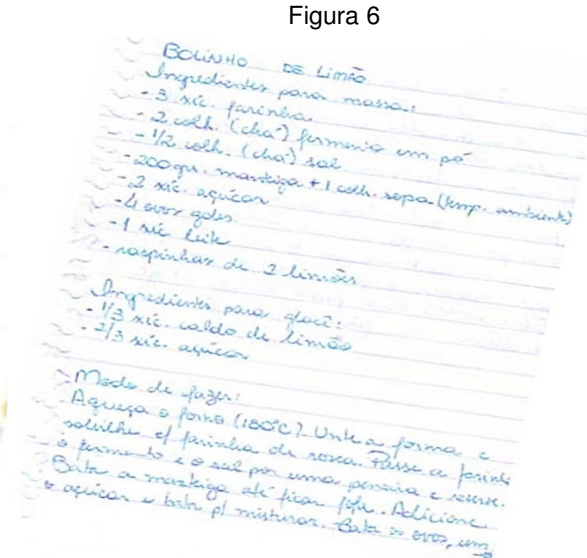 Figura 6
BOLINHO DE Limão
Ingredientes para massa:
- 3 xíc. farinha
- 2 colh. (chá) fermento em pó
- 1/2 colh. (chá) sal
- 200 gr. manteiga + 1 colh. sopa (temp. ambiente)
- 2 xíc. açúcar
- 4 ovos gdes.
- 1 xíc leite
- raspinhas de 2 limões
Ingredientes para glacê:
- 1/3 xíc. caldo de limão
- 2/3 xíc. açúcar
Modo de fazer:
Aqueça o forno (180°C). Unte a forma e
polvilhe c/ farinha de rosca. Passe a farinha
o fermento e o sal por uma peneira e reserve.
Bata a manteiga até ficar fofa. Adicione
o açúcar e bata p/ misturar. Bata os ovos, um